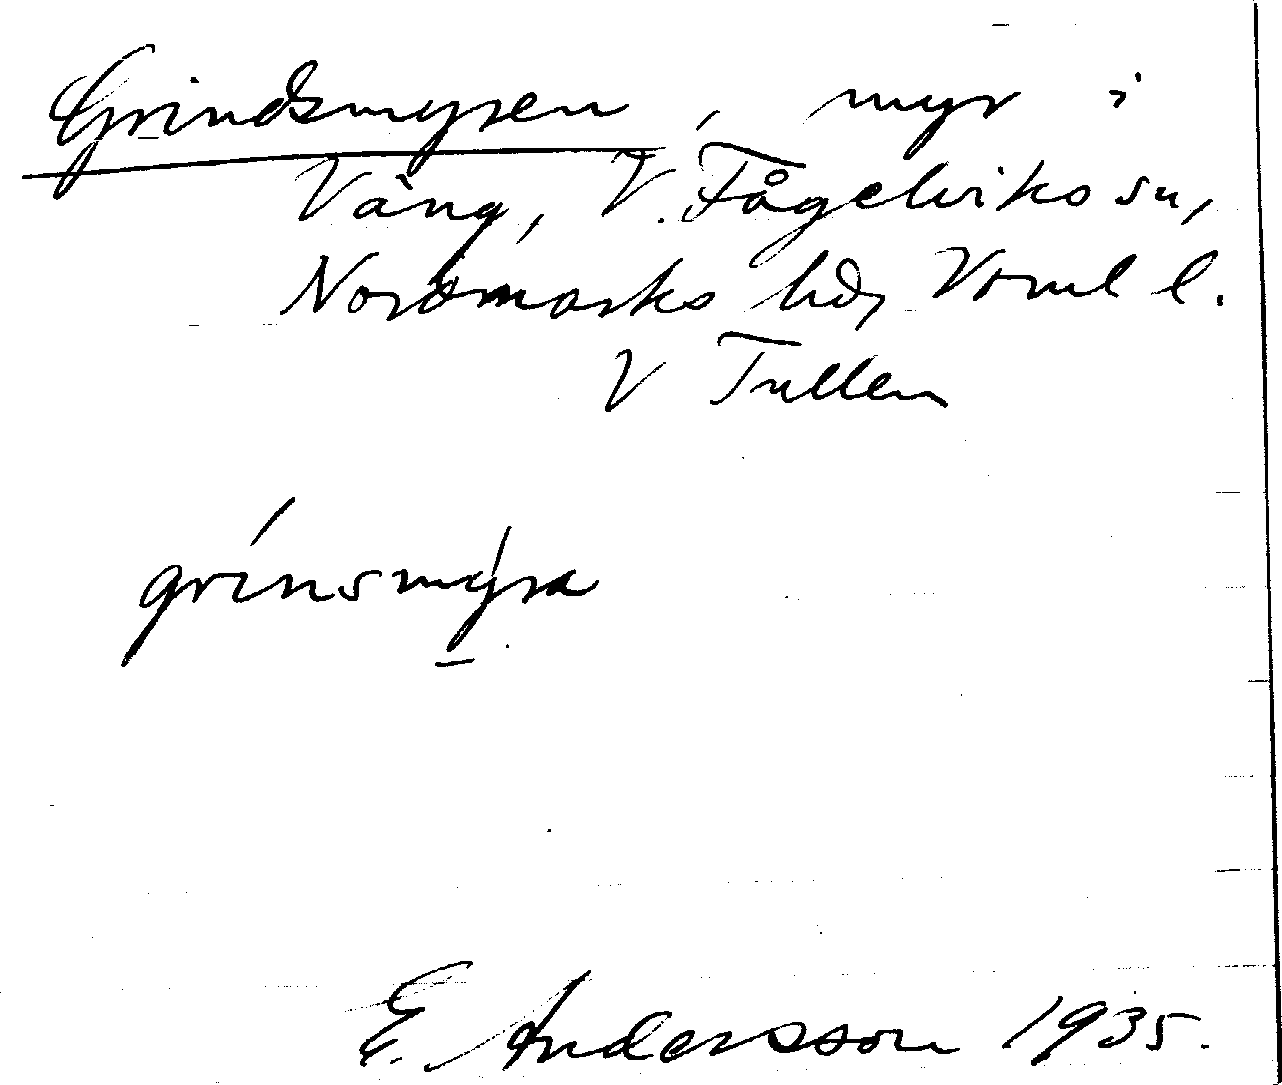 Grindsmyren, myr i
Väng, V. Fågelviks sn,
Nordmarks hd, Vrml l.
V Tullen
grinsmyra
E. Andersson 1935.